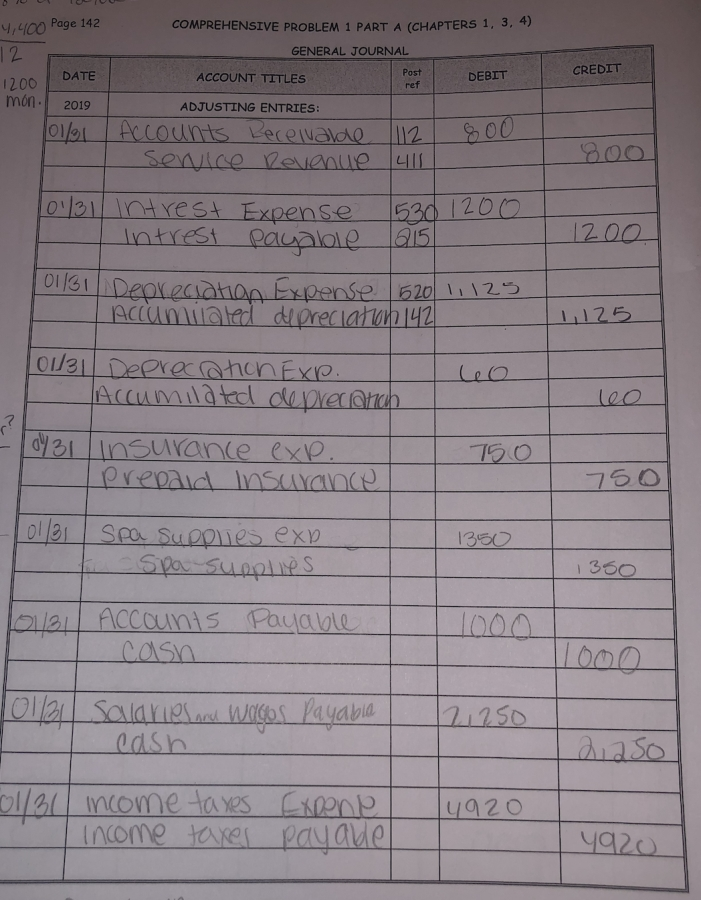 4,400 Page 142 COMPREHENSIVE PROBLEM 1 PART A (CHAPTERS 1, 3, 4)
12 GENERAL JOURNAL
1200 DATE ACCOUNT TITLES Post ref DEBIT CREDIT
mon. 2019 ADJUSTING ENTRIES:
01/31 Accounts Receivable 112 800
Service Revenue 411 800
01/31 Intrest Expense 530 1200
Intrest payable 215 1200
01/31 Depreciation Expense 520 1,125
Accumilated depreciation 142 1,125
01/31 Depreciation Exp. 60
Accumilated depreciation 60
01/31 Insurance exp. 750
prepaid Insurance 750
01/31 Spa supplies exp 1350
Spa supplies 1350
01/31 Accounts Payable 1000
cash 1000
01/31 Salaries and Wages Payable 2,250
cash 2,250
01/31 income taxes Expense 4920
income taxes payable 4920